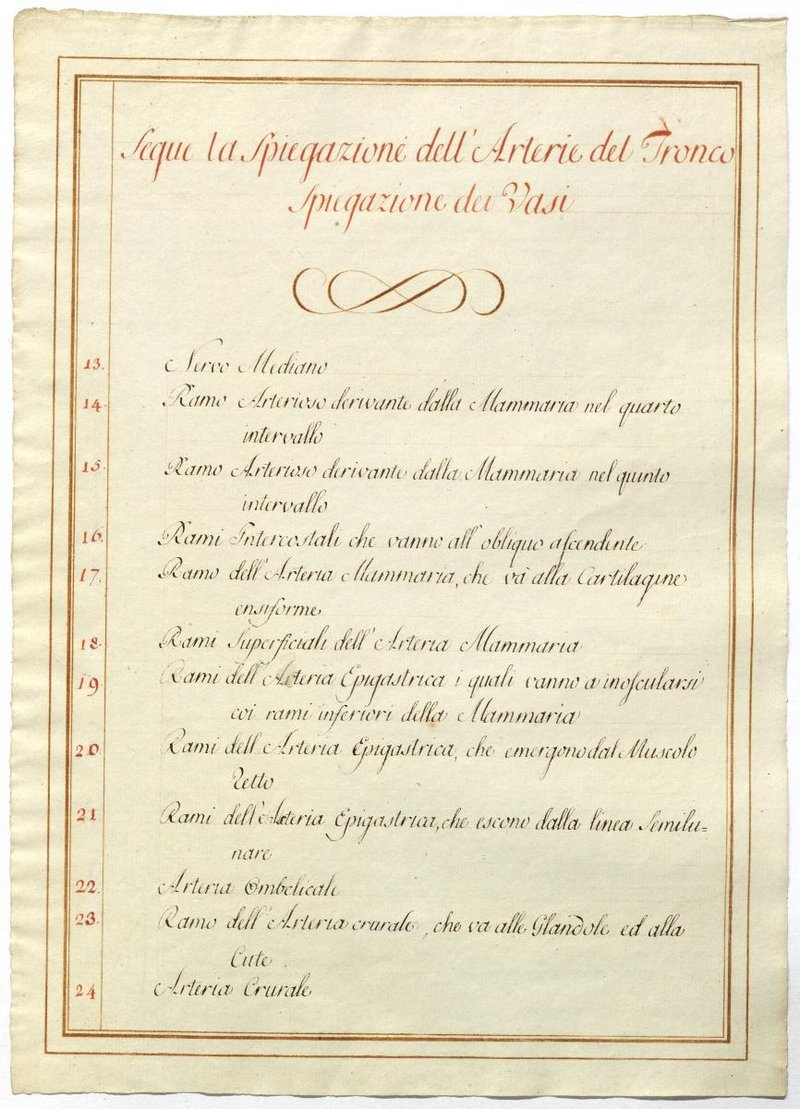 Segue la Spiegazione dell'Arterie del Tronco
Spiegazione dei Vasi
13. Nervo Mediano
14. Ramo Arterioso derivante dalla Mammaria nel quarto
intervallo
15. Ramo Arterioso derivante dalla Mammaria nel quinto
intervallo
16. Rami Intercostali che vanno all'obliquo ascendente
17. Ramo dell'Arteria Mammaria, che và alla Cartilagine
ensiforme
18. Rami Superficiali dell'Arteria Mammaria
19 Rami dell'Arteria Epigastrica i quali vanno a inoscularsi
coi rami inferiori della Mammaria
20 Rami dell'Arteria Epigastrica, che emergono dal Muscolo
Retto
21 Rami dell'Arteria Epigastrica, che escono dalla linea Semilu=
nare
22. Arteria Ombelicale
23. Ramo dell'Arteria crurale, che va alle Glandole ed alla
Cute.
24 Arteria Crurale